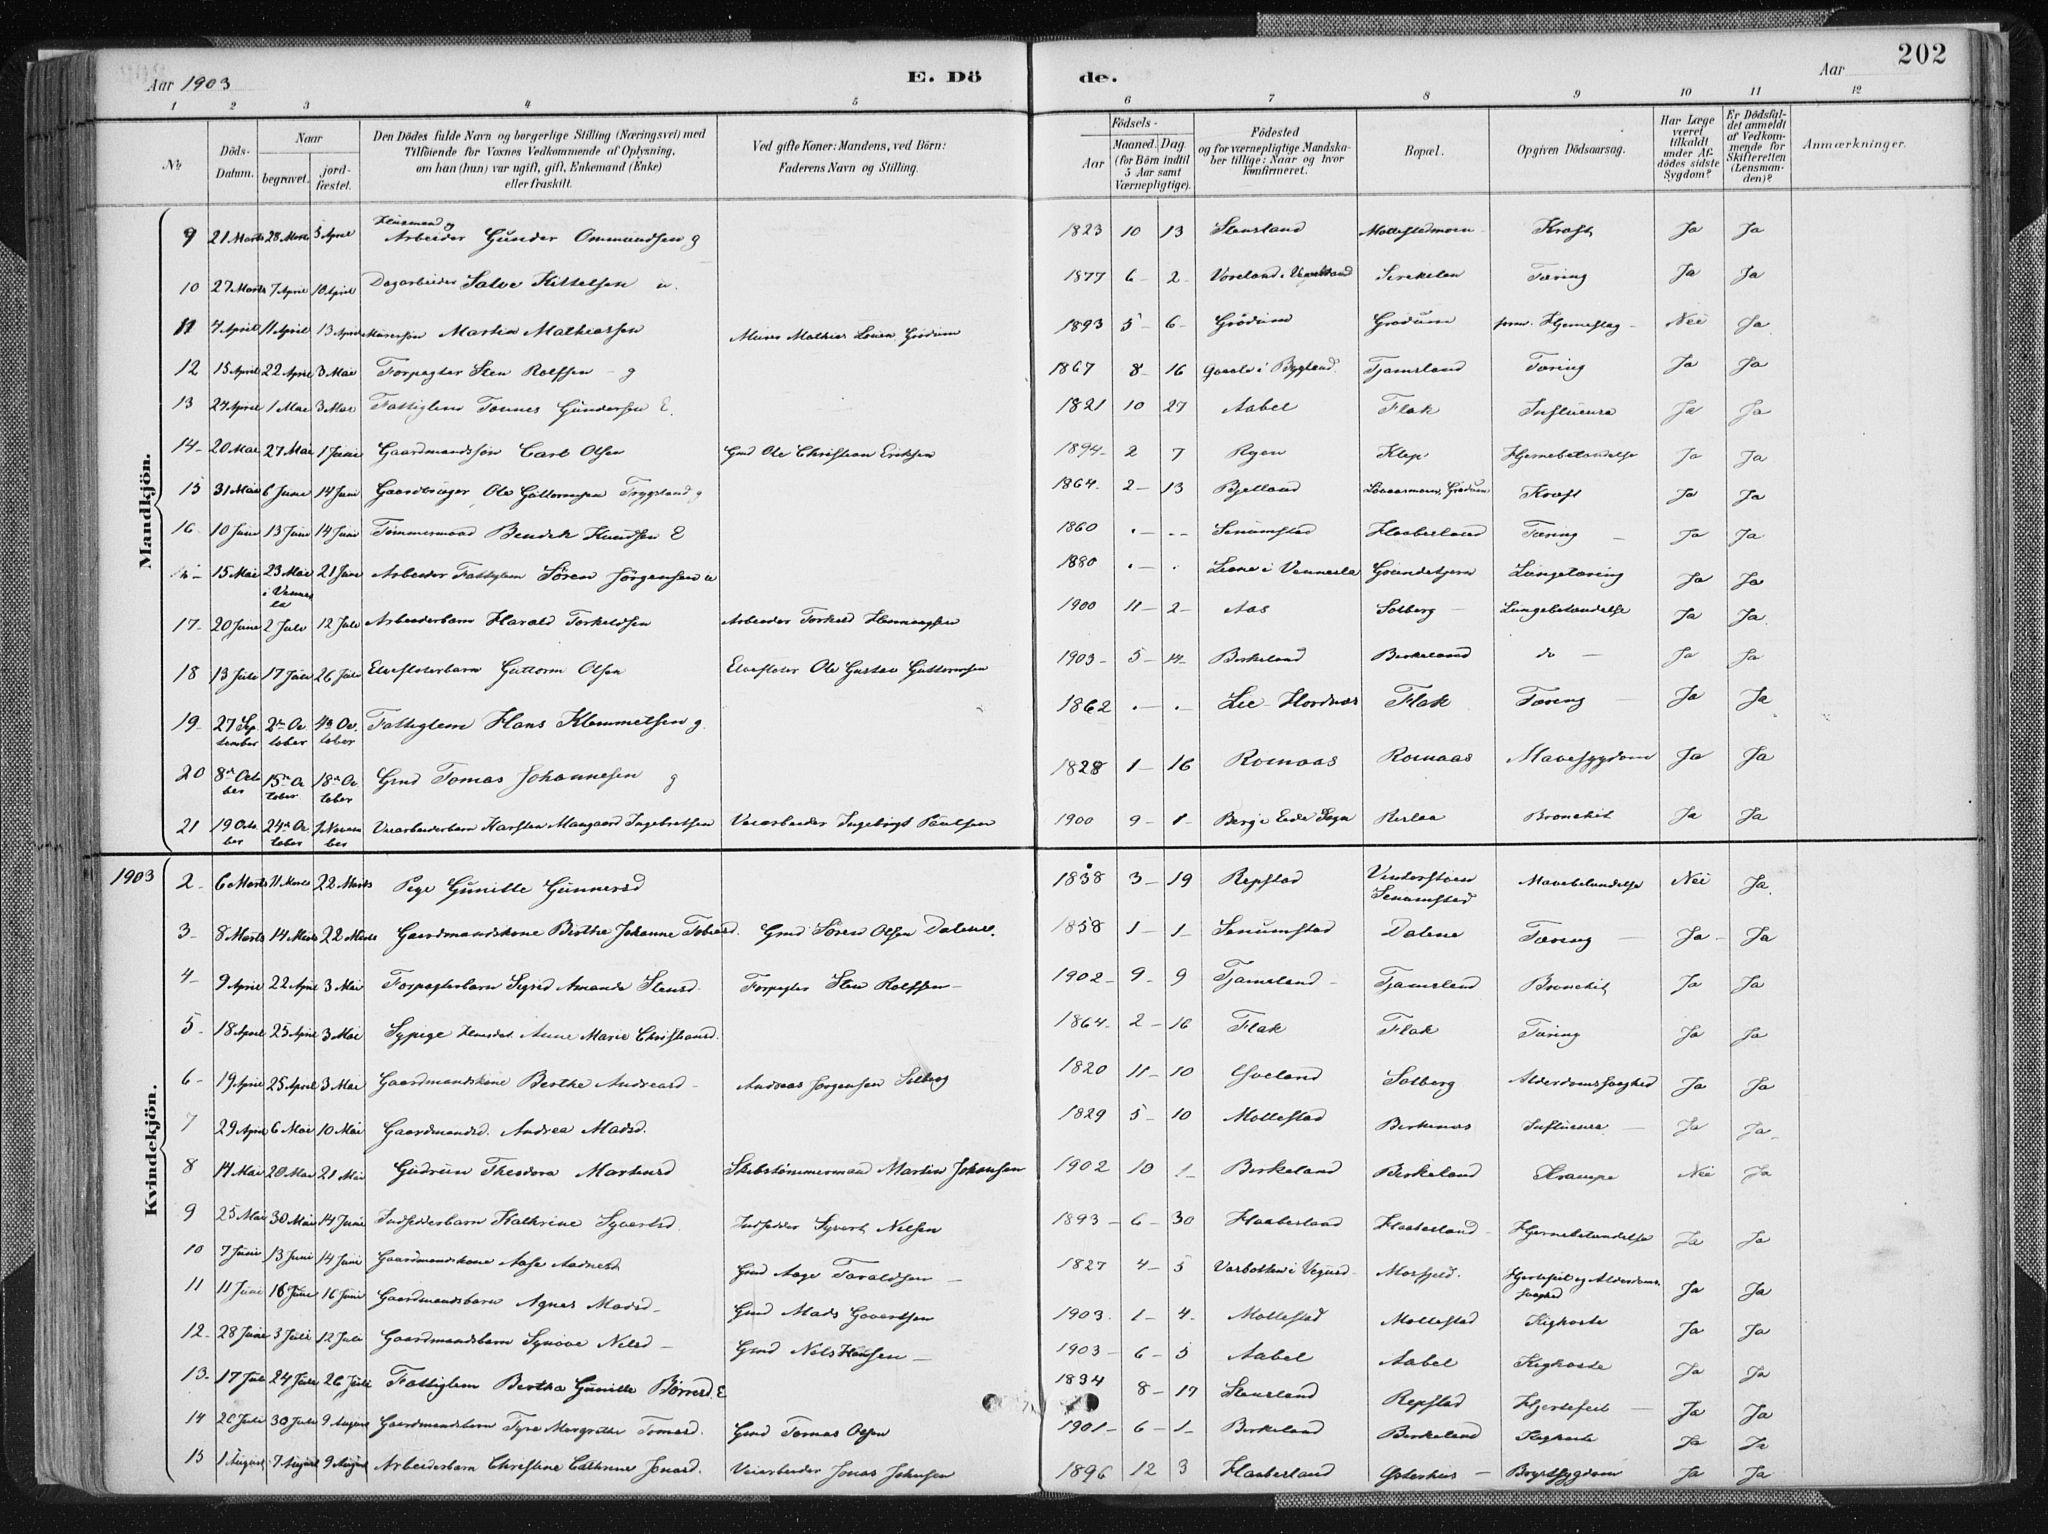 202
Aar 1903
E. Dö
de.
Aar
1 2 3 4 5 6 7 8 9 10 11 12
No
Döds-Datum.
Naar
begravet.
jord-fæstet.
Den Dödes fulde Navn og borgerlige Stilling (Næringsvei) med
Tilföiende for Voxnes Vedkommende af Oplysning,
om han (hun) var ugift, gift, Enkemand (Enke)
eller fraskilt.
Ved gifte Koner: Mandens, ved Börn:
Faderens Navn og Stilling.
Födsels-
Aar
Maaned. Dag.
(for Börn indtil
5 Aar samt
Værnepligtige).
Födested
og for værnepligtige Mandska-
ber tillige: Naar og hvor
konfirmeret.
Bopæl.
Opgiven Dödsaarsag.
Har Læge
været
tilkaldt
under Af-
dödes sidste
Sygdom?
Er Dödsfal-
det anmeldt
af Vedkom-
mende for
Skifteretten
(Lensman-
den)?
Anmærkninger.
Mandkjön.
9 21 Marts 28 Marts 5 April Husmand og Arbeider Gunder Ommundsen g 1823 10 13 Stensland Mollestadmoen Kræft Ja Ja
10 27 Marts 7 April 10 April Dagarbeider Salve Kittelsen u. 1877 6 2 Birketan Tæring Ja Ja
11 7 April 11 April 13 April Martin Mathiassen 1893 5 6 Grødum Grødum Hjerneslag Nei Ja
12 15 April 22 April 3 Mai Forpagter Sten Rolfsen g 1867 8 16 i Bygland Tjamsland Tæring Ja Ja
13 27 April 1 Mai 3 Mai Fattiglem Tønnes Gundersen E. 1821 10 27 Aabel Flak Influensa Ja Ja
14 20 Mai 27 Mai 1 Juni Gaardmandssøn Carl Olsen Gmd Ole Christian Eriksen 1894 2 7 Ryen Klep Hjernebetændelse Ja Ja
15 31 Mai 6 Juni 14 Juni Gaardbruger Ole Guttormsen Trygsland g 1864 2 13 Bjelland Grødum Kræft Ja Ja
16 10 Juni 13 Juni 14 Juni Tømmermand Bendik Knudsen E 1860 Senumstad Haaberland Tæring Ja Ja
15 Mai 23 Mai i Vennesla 21 Juni Arbeider Fattiglem Søren Jørgensen u 1880 i Vennesla Grundetjern Lungetæring Ja Ja
17 20 Juni 2 Juli 12 Juli Arbeiderbarn Harald Torkeldsen Arbeider Torkeld Henningsen 1900 11 2 Aas Solberg Lungebetændelse Ja Ja
18 13 Juli 17 Juli 26 Juli Elvefløterbarn Guttorm Olsen Elvefløter Ole Gustav Guttormsen 1903 5 14 Birkeland Birkeland do Ja Ja
19 27 September 2n October 4n October Fattiglem Hans Klemmetsen g. 1862 Lie Hordnæs Flak Tæring Ja Ja
20 8n October 15n October 18n October Gmd Tomas Johannesen g 1828 1 16 Romaas Romaas Mavesygdom Ja Ja
21 19 October 24n October 1 November Veiarbeiderbarn Karsten Maugaard Ingebretsen Veiarbeider Ingebrigt Paulsen 1900 9 1 Berg i Eide Sogn Rislaa Bronchit Ja Ja
Kvindekjön.
1903 2 6 Marts 11 Marts 22 Marts Pige Gunille Gunnersd 1838 3 19 Repstad Senumstad Mavebetændelse Nei Ja
3 8 Marts 14 Marts 22 Marts Gaardmandskone Birthe Johanne Tobiasd. Gmd Søren Olsen Dalene. 1858 1 1 Senumstad Dalene Tæring Ja Ja
4 9 April 22 April 3 Mai Forpagterbarn Sigrid Amanda Stensd. Forpagter Sten Rolfsen 1902 9 9 Tjamsland Tjamsland Bronchit Ja Ja
5 18 April 25 April 3 Mai Sypige Anne Marie Christiansd. 1864 2 16 Flak Flak Tæring Ja Ja
6 19 April 25 April 3 Mai Gaardmandskone Berthe Andreasd Andreas Jørgensen Solberg 1820 11 10 Solberg Alderdomssvaghed Ja Ja
7 29 April 6 Mai 10 Mai Gaardmandsd. Andrea Madsd. 1829 5 10 Mollestad Birkenæs Influensa Ja Ja
8 14 Mai 20 Mai 21 Mai Gudrun Theodora Martinsd Skibstømmermand Martin Johansen 1902 10 1 Birkeland Birkeland Krampe Nei Ja
9 25 Mai 30 Mai 14 Juni Indsidderbarn Kathrine Syvertsd. Indsidder Syvert Nilsen 1893 6 30 Haaberland Haaberland Hjernebetændelse Ja Ja
10 7 Juni 13 Juni 14 Juni Gaardmandskone Aase Aadnesd. Gmd Aage Taraldsen 1827 4 5 i Vegusd. Mosfjeld. Hjertefeil og Alderdomssvaghed Ja Ja
11 11 Juni 16 Juni 16 Juni Gaardmandsbarn Agnes Madsd Gmd Mads Govertsen 1903 1 4 Mollestad Mollestad Kighoste Ja Ja
12 28 Juni 3 Juli 12 Juli Gaardmandsbarn Synøve Nilsd Gmd Nils Hansen 1903 6 5 Aabel Aabel Kighoste Ja Ja
13 17 Juli 24 Juli 26 Juli Fattiglem Bertha Gunille Børresd. E 1834 8 17 Stensland Repstad Hjertefeil Ja Ja
14 26 Juli 30 Juli 9 August Gaardmandsbarn Tyra Margrethe Tomasd. Gmd Tomas Olsen 1901 6 1 Birkeland Birkeland Kighoste Ja Ja
15 1 August 7 August 9 August Arbeiderbarn Christine Cathrine Jonasd. Veiarbeider Jonas Johnsen 1896 12 3 Haaberland Osterhus Brystsygdom Ja Ja